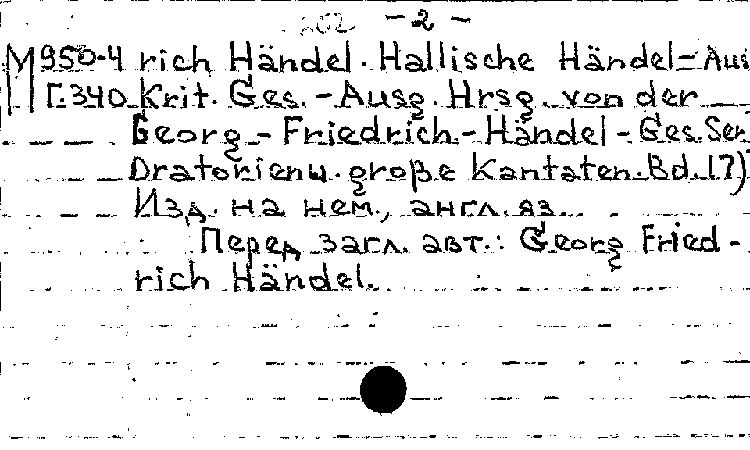 - 2 -
М950-4 rich Händel. Hallische Händel-Aus
Г.340 Krit. Ges.-Ausg. Hrsg. von der
Georg-Friedrich-Händel-Ges. Ser
Oratorien u. große Kantaten. Bd. 17)
Изд. на нем., англ. яз.
Перед загл. авт.: Georg Fried-
rich Händel.